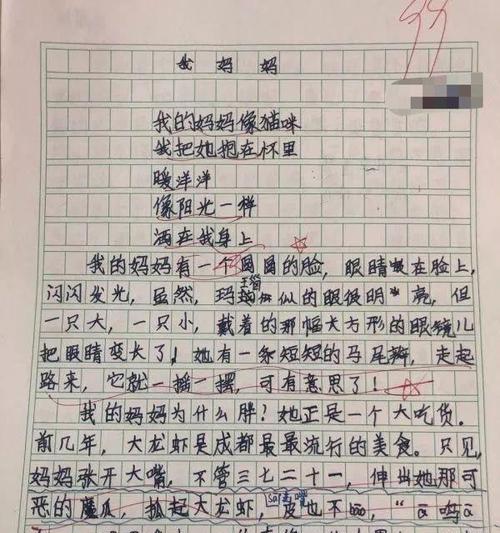 99
我妈妈
我的妈妈像猫咪
我把她抱在怀里
暖洋洋
像阳光一样
洒在我身上
我的妈妈有一个圆圆的脸，眼睛嵌在脸上，
闪闪发光，虽然，玛瑙似的眼很明亮，但
一只大，一只小，戴着的那幅大方形的眼镜儿
把眼睛变长了，她有一条短短的马尾辫，走起
路来，它就一摇一摆，可有意思了！
我的妈妈为什么胖？她正是一个大吃货。
前几年，大龙虾是成都最最流行的美食。只见，
妈妈张开大嘴，不管三七二十一，伸出她那可
恶的魔爪，抓起大龙虾，皮也不，“ā 呜ā